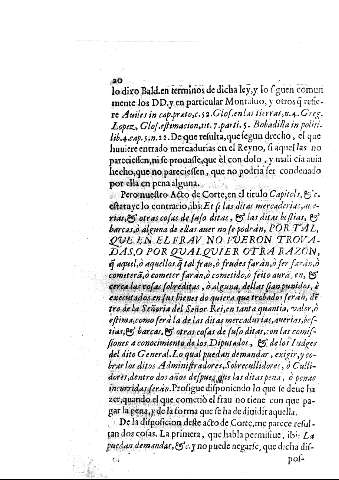 20
lo dixo Bald. en terminos de dicha ley, y lo siguen comun
mente los DD, y en particular Montaluo, y otros q̃ refie-
re Auiles in cap. prato, c. 32. Glos. en las tierras, n. 4. Greg.
Lopez, Glos. estimacion, tit. 7. parti. 5. Bobadilla in politi-
lib. 4. cap. 5. n. 22. De que resulta, que segun drecho, el que
huuiere entrado mercadurias en el Reyno, si aquellas no
pareciessen, ni se prouasse, que el con dolo, y malicia auia
hecho, que no pareciessen, que no podria ser condenado
por ella en pena alguna.
Pero nuestro Acto de Corte, en el titulo Capitols, &c.
estatuye lo contrario, ibi: Et si las ditas mercaderias, aue-
rias, & otras cosas de suso ditas, & las ditas bestias, &
barcas, o alguna de ellas auer no se podrán, POR TAL,
QUE EN EL FRAV NO FUERON TROVA-
DAS, O POR QUALQUIER OTRA RAZON,
q̃ aquel, o aquellos q̃ tal frau, o fraudes farán, o fer farán, o
cometerá, o cometer farán, o cometido, o feito aurá, en, &
cerca las cosas sobreditas, o alguna, dellas sian punidos, è
executados en sus bienes do quiere que trobados serán, dẽ
tro de la Señoria del Señor Rei, en tanta quantia, valor, ò
estima, como serà la de las ditas mercadurias, auerias, bes-
tias, & barcas, & otras cosas de suso ditas: con las comis-
siones a conocimiento de los Diputados, & de los Iudges
del dito General. Lo qual puedan demandar, exigir, y co-
brar los ditos Administradores, Sobrecullidores, ò Culli-
dores, dentro dos años despues, que las ditas pena, ò penas
incurridas serán. Prosigue disponiendo lo que se deue ha
zer, quando el que cometiò el frau no tiene con que pa-
gar la pena, y de la forma que se ha de diuidir aquella.
De la disposicion deste acto de Corte, me parece resul-
tan dos cosas. La primera, que habla permissiuè, ibi: Lo
puedan demandar, &c. y no puede negarse, que dicha dis-
pos-